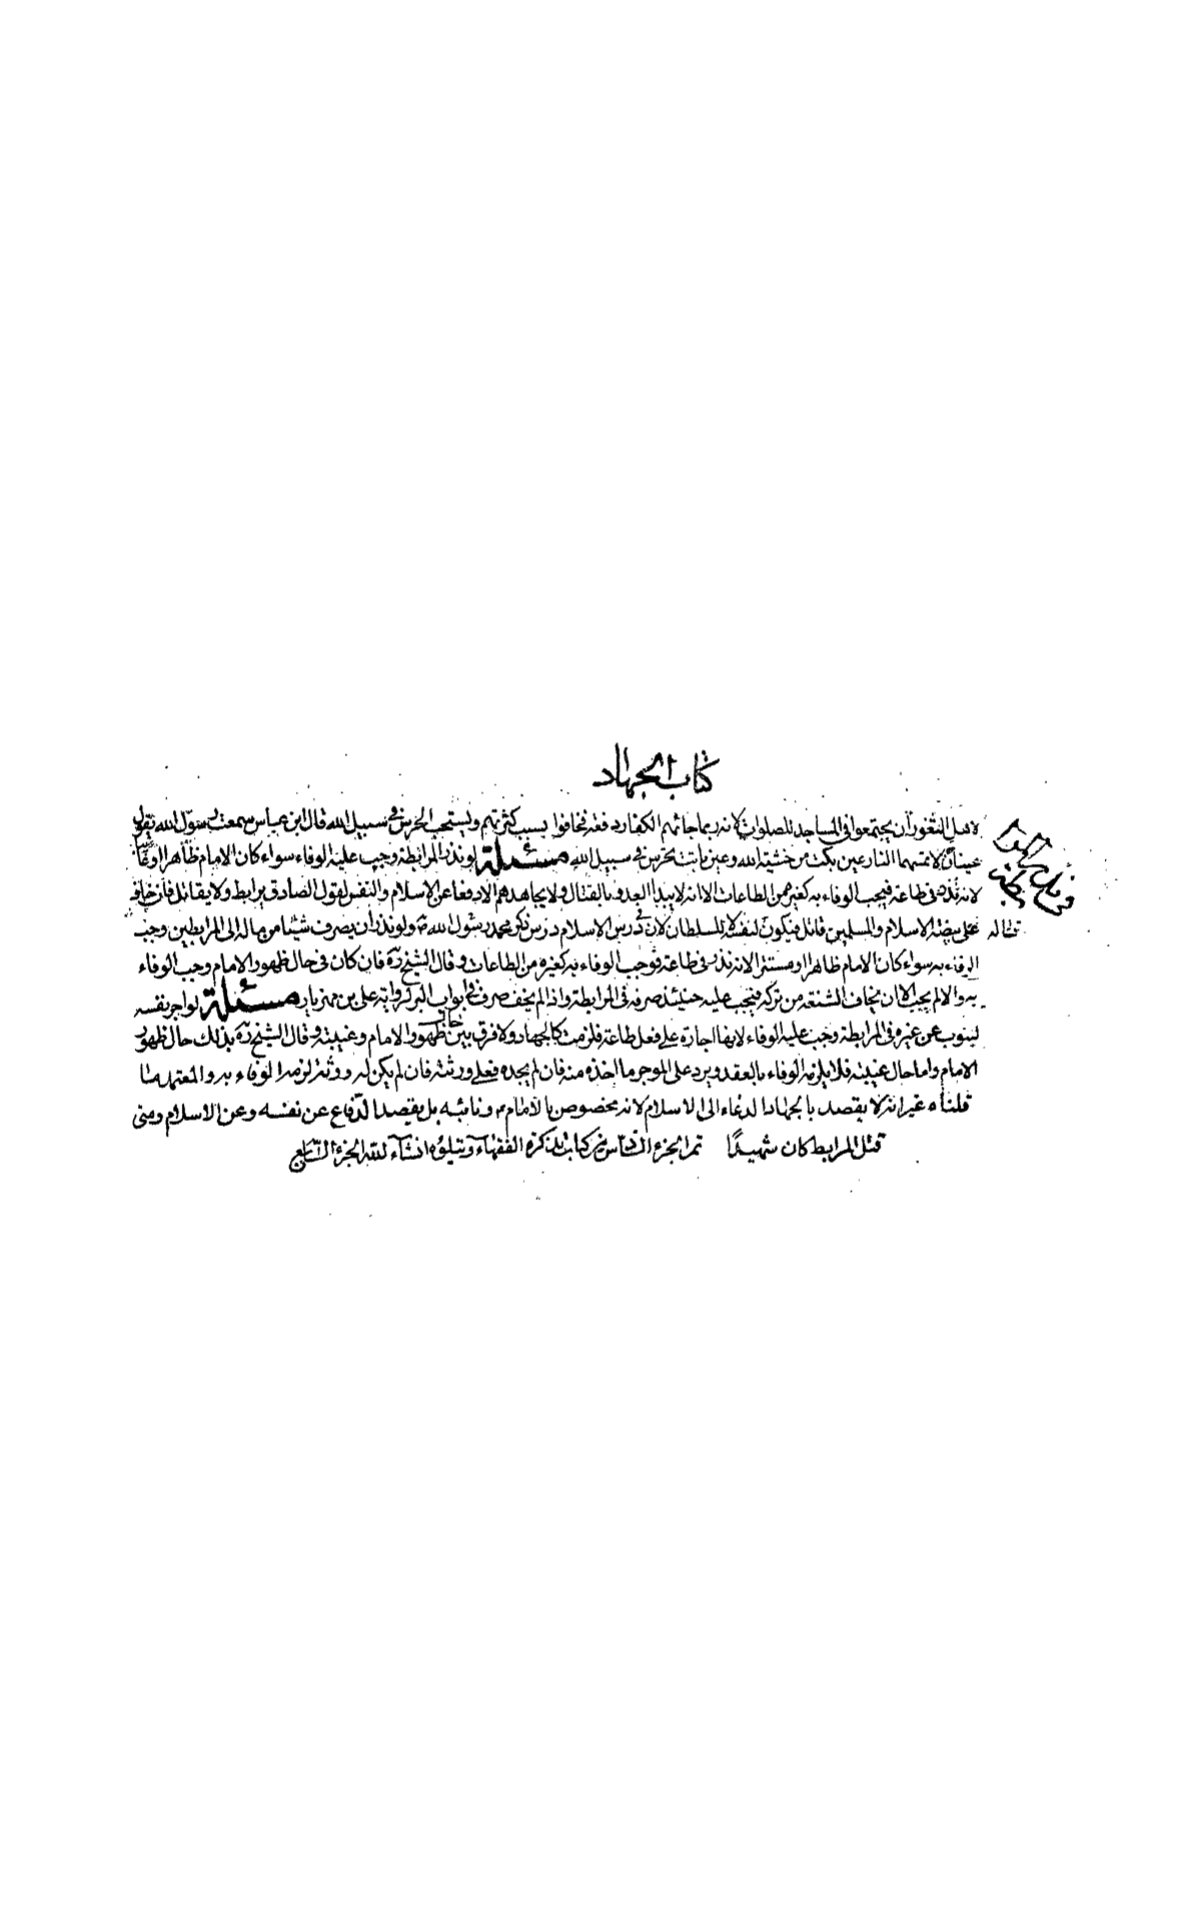 كتاب الجهاد
لاهل الثغور ان يجتمعوا في المساجد للصلوات لانه ربما جائهم الكفار دفعة فخافوا بسبب كثرتهم ويستحب الحرس في سبيل الله قال ابن عباس سمعت رسول الله يقول
عينان لا تمسهما النار عين بكت من خشية الله وعين باتت تحرس في سبيل الله مسئلة لو نذر المرابطة وجب عليه الوفاء سواء كان الامام ظاهرا او
لانه نذر في طاعة فيجب الوفاء به كغيره من الطاعات الا انه لا يبدا العدو بالقتال ولا يجاهدهم الا دفعا عن الاسلام والنفس لقول الصادق يرابط ولا يقاتل فان خاف
على بيضة الاسلام والمسلمين قاتل فيكون قتاله لنفسه لا للسلطان لان في درس الاسلام درس ذكر محمد رسول الله ص ولو نذر ان يصرف شيئا من ماله الى المرابطين وجب
الوفاء به سواء كان الامام ظاهرا او مستترا لانه نذر في طاعة فوجب الوفاء به كغيره من الطاعات وقال الشيخ ره فان كان في حال ظهور الامام وجب الوفاء
به والا لم يجب الا ان يخاف الشنعة من تركه فيجب عليه حينئذ صرفه في المرابطة واذا لم يخف صرف في ابواب البر لرواية علي بن مهزيار مسئلة لو اجر نفسه
لينوب عن غيره في المرابطة وجب عليه الوفاء لانها اجارة على فعل طاعة فلزمت كالجهاد ولا فرق بين حال ظهور الامام وغيبته وقال الشيخ ره بذلك حال ظهور
الامام واما حال غيبته فلا يلزمه الوفاء بالعقد ويرد على الموجر ما اخذه منه فان لم يجده فعلى ورثته فان لم يكن له ورثة لزمه الوفاء به والمعتمد ما
قلناه غير انه لا يقصد بالجهاد الدعاء الى الاسلام لانه مخصوص بالامام ونائبه بل يقصد الدفاع عن نفسه وعن الاسلام ومتى
قتل المرابط كان شهيدا تم الجزء السادس من كتاب تذكرة الفقهاء ويتلوه انشاء الله الجزء السابع